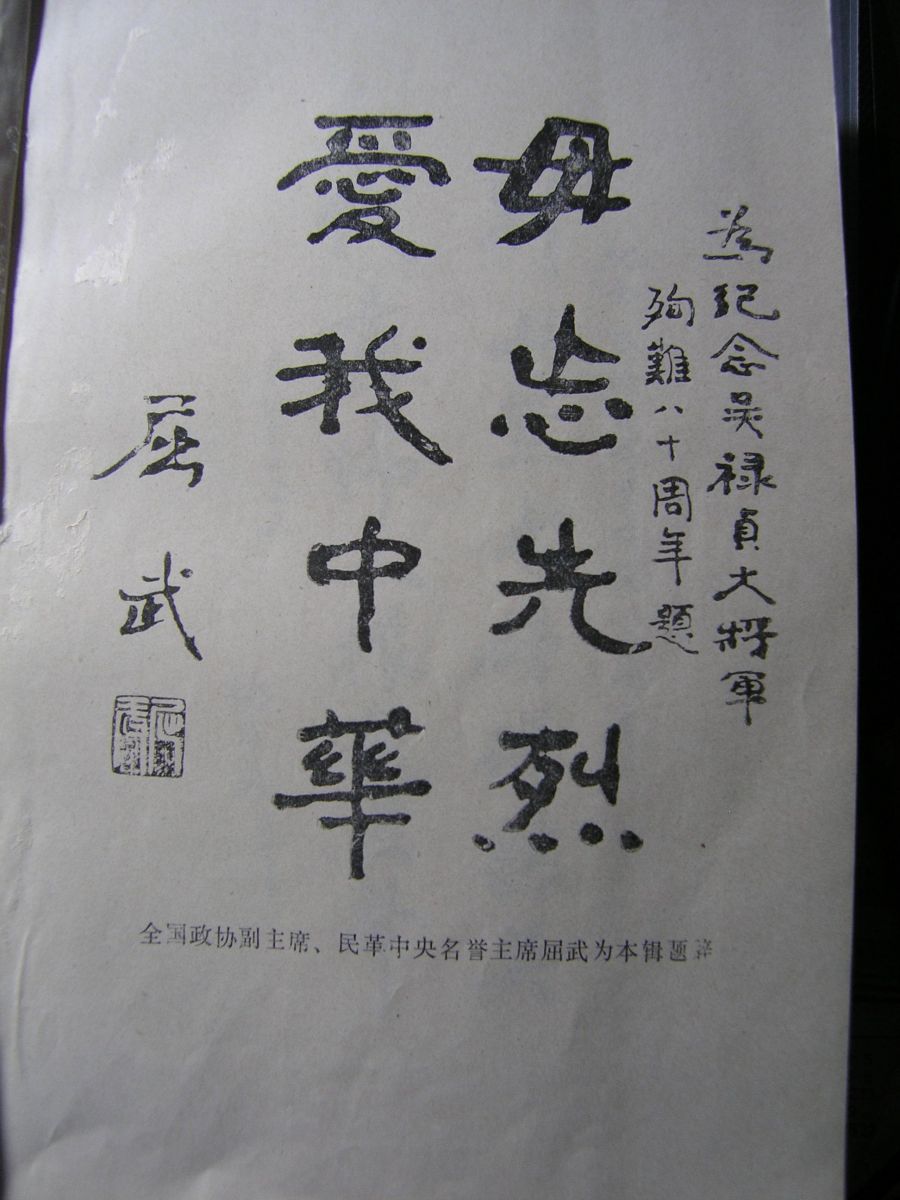 為紀念吴禄貞大將軍
殉難八十周年題
毋忘先烈
愛我中華
屈武
全国政协副主席、民革中央名誉主席屈武为本辑题